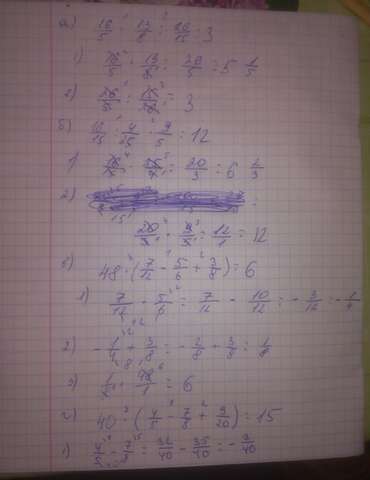 а) 16/5 · 13/8 : 26/15 = 3
1) 16/5 · 13/8 = 26/5 = 5 1/5
2) 26/5 · 15/26 = 3
б) 16/15 : 4/25 · 9/5 = 12
1) 16/15 · 25/4 = 20/3 = 6 2/3
2)
20/3 · 9/5 = 12/1 = 12
48 · (7/12 - 5/6 + 3/8) = 6
1) 7/12 - 5/6 = 7/12 - 10/12 = - 3/12 = - 1/4
2) - 1/4 + 3/8 = - 2/8 + 3/8 = 1/8
3) 1/8 · 48/1 = 6
г) 40 · (4/5 - 7/8 + 9/20) = 15
1) 4/5 - 7/8 = 32/40 - 35/40 = - 3/40